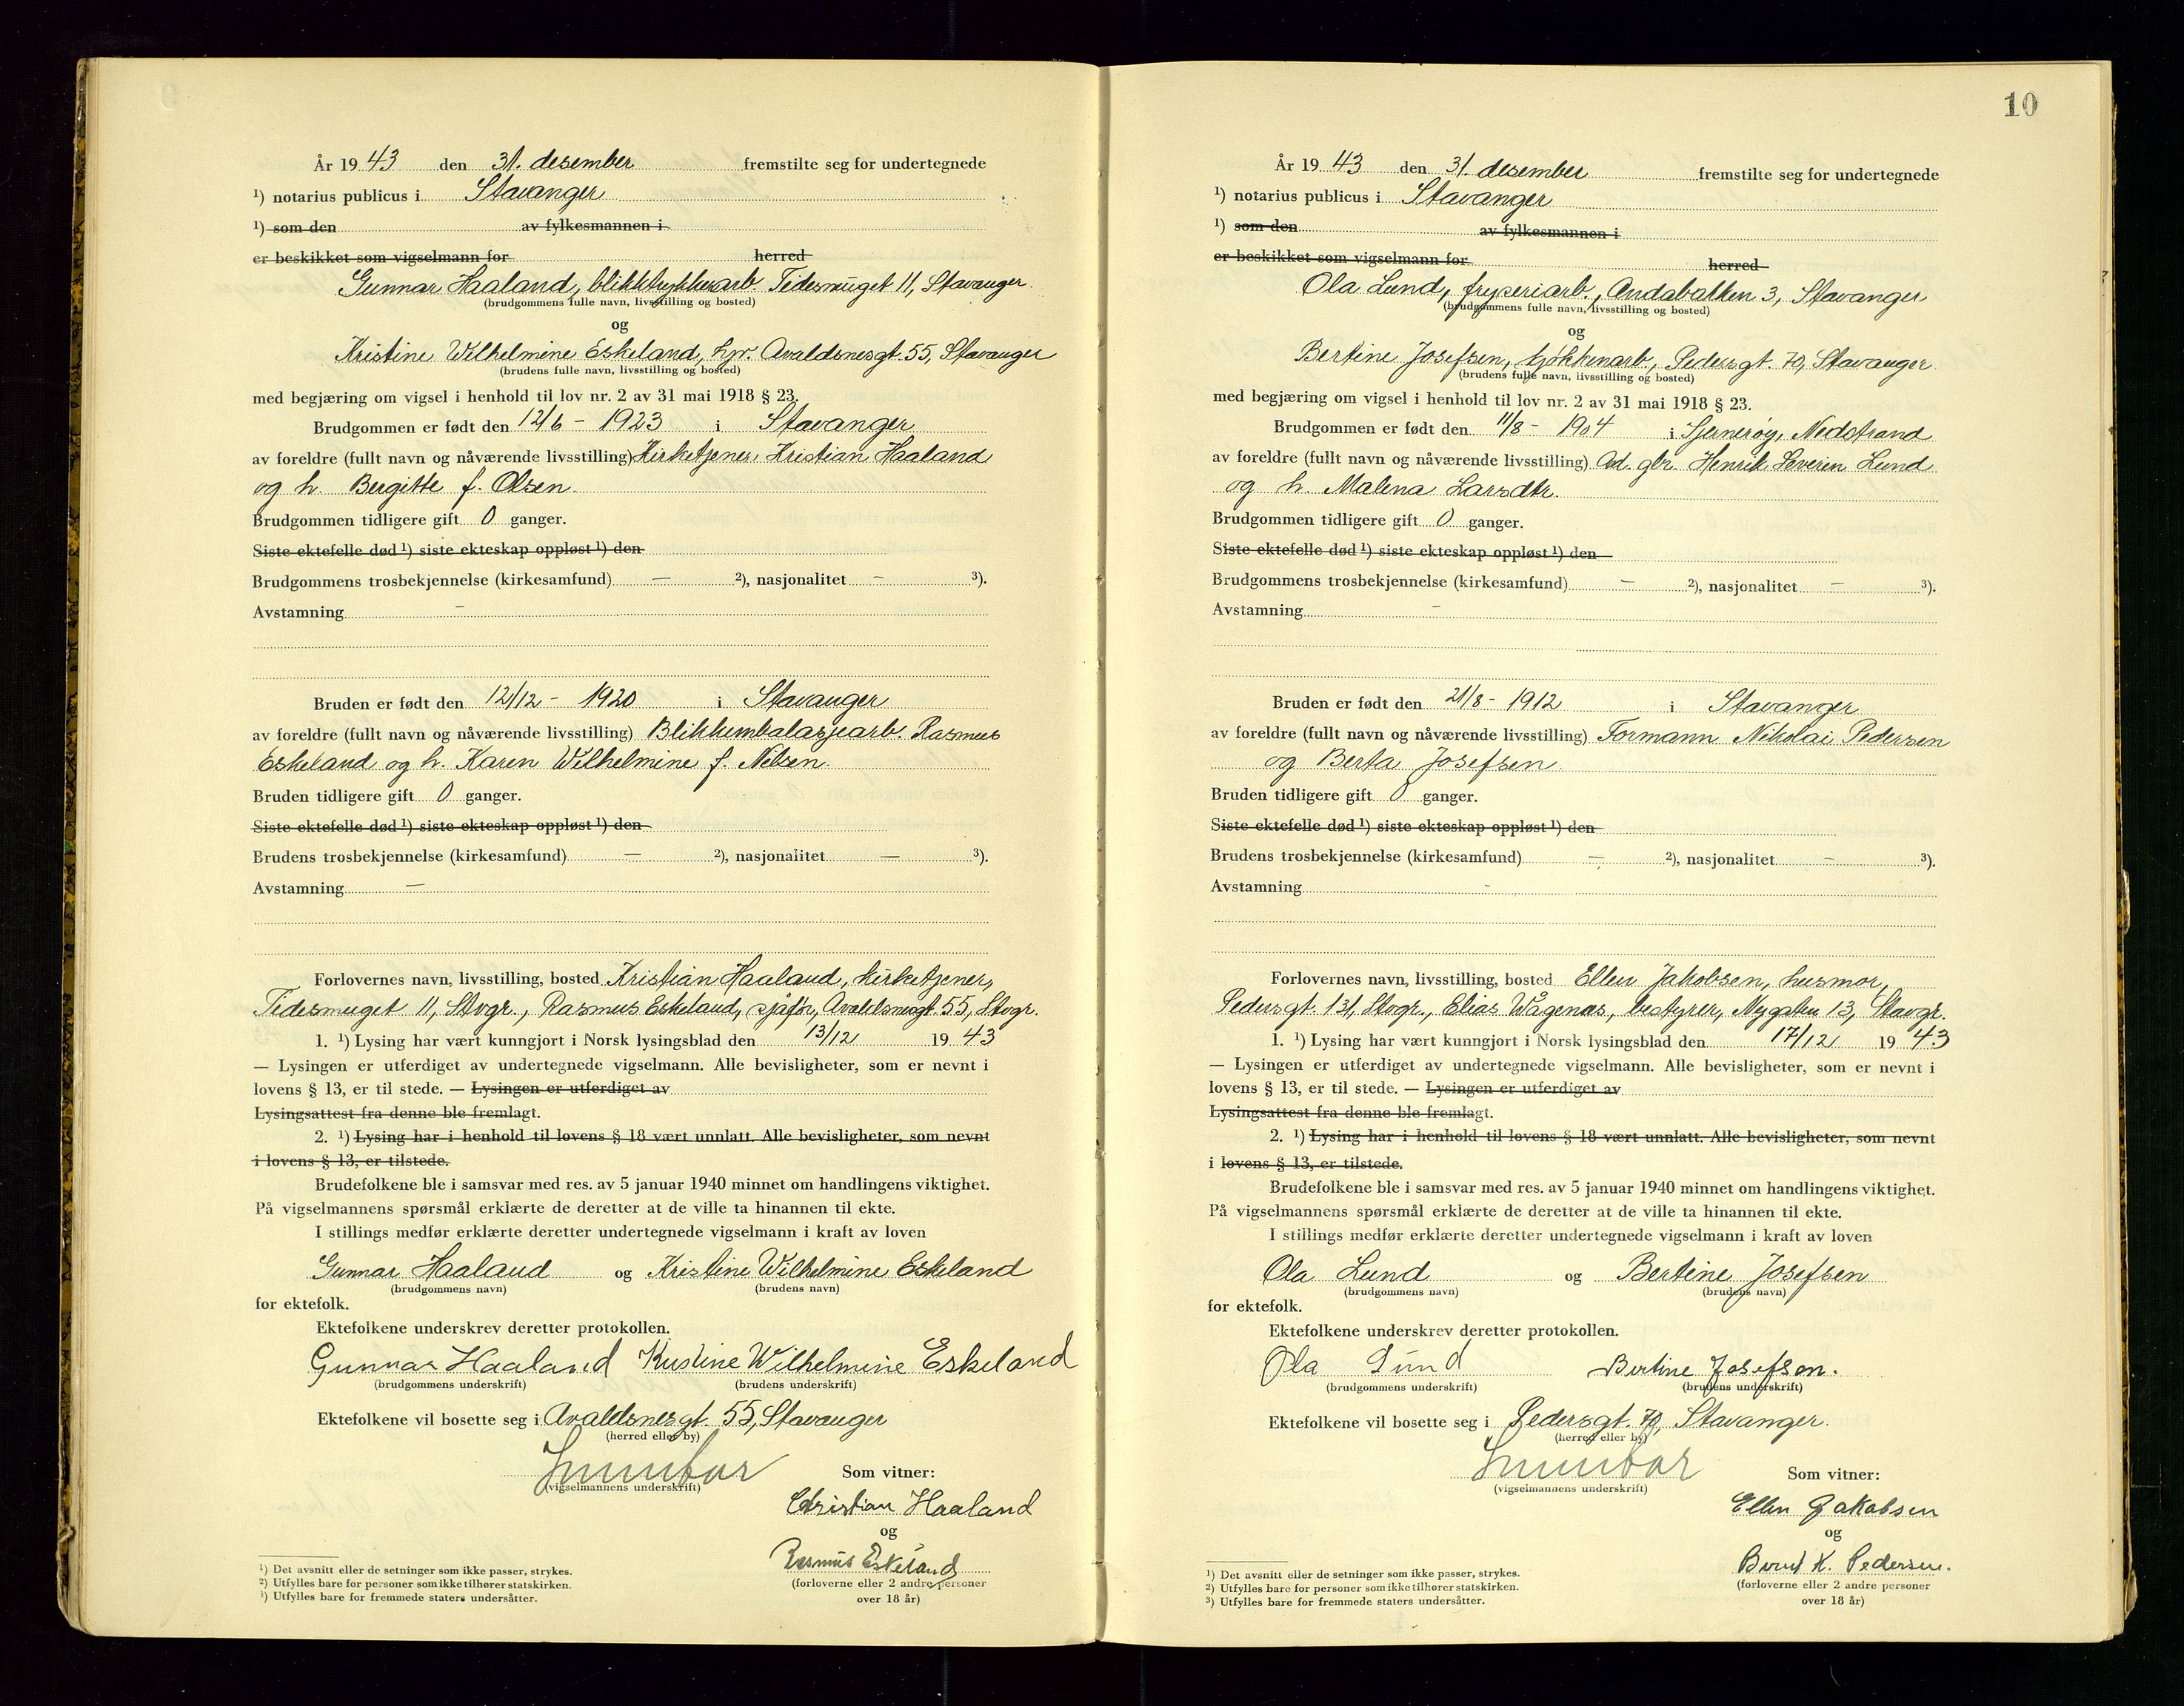 År 1943 den 31. desember fremstilte seg for undertegnede
¹) notarius publicus i Stavanger
¹) som den av fylkesmannen i
er beskikket som vigselmann for herred
Gunnar Haaland, blikktrykkerarb. Tidesmuget 11, Stavanger
(brudgommens fulle navn, livsstilling og bosted)
og
Kristine Wilhelmine Eskeland, hjv. Avaldsnesgt. 55, Stavanger
(brudens fulle navn, livsstilling og bosted)
med begjæring om vigsel i henhold til lov nr. 2 av 31 mai 1918 § 23.
Brudgommen er født den 12/6 - 1923 i Stavanger
av foreldre (fullt navn og nåværende livsstilling) Kirketjener, Kristian Haaland
og h. Bergitte f. Olsen.
Brudgommen tidligere gift 0 ganger.
Siste ektefelle død ¹) siste ekteskap oppløst ¹) den
Brudgommens trosbekjennelse (kirkesamfund) — ²), nasjonalitet — ³).
Avstamning —
Bruden er født den 12/12 - 1920 i Stavanger
av foreldre (fullt navn og nåværende livsstilling) Blikkembalasjearb. Rasmus
Eskeland og h. Karen Wilhelmine f. Nelsen.
Bruden tidligere gift 0 ganger.
Siste ektefelle død ¹) siste ekteskap oppløst ¹) den
Brudens trosbekjennelse (kirkesamfund) — ²), nasjonalitet — ³).
Avstamning —
Forlovernes navn, livsstilling, bosted Kristian Haaland, kirketjener,
Tidesmuget 11, Stvgr., Rasmus Eskeland, sjåfør, Avaldsnesgt. 55, Stvgr.
1. ¹) Lysing har vært kunngjort i Norsk lysingsblad den 13/12 1943
— Lysingen er utferdiget av undertegnede vigselmann. Alle bevisligheter, som er nevnt i
lovens § 13, er til stede. — Lysingen er utferdiget av
Lysingsattest fra denne ble fremlagt.
2. ¹) Lysing har i henhold til lovens § 18 vært unnlatt. Alle bevisligheter, som nevnt
i lovens § 13, er tilstede.
Brudefolkene ble i samsvar med res. av 5 januar 1940 minnet om handlingens viktighet.
På vigselmannens spørsmål erklærte de deretter at de ville ta hinannen til ekte.
I stillings medfør erklærte deretter undertegnede vigselmann i kraft av loven
Gunnar Haaland og Kristine Wilhelmine Eskeland
(brudgommens navn) (brudens navn)
for ektefolk.
Ektefolkene underskrev deretter protokollen.
Gunnar Haaland Kristine Wilhelmine Eskeland
(brudgommens underskrift) (brudens underskrift)
Ektefolkene vil bosette seg i Avaldsnesgt. 55, Stavanger
(herred eller by)
(vigselmannens underskrift)
Som vitner:
Christian Haaland
og
Rasmus Eskeland
(forloverne eller 2 andre personer
over 18 år)
¹) Det avsnitt eller de setninger som ikke passer, strykes.
²) Utfylles bare for personer som ikke tilhører statskirken.
³) Utfylles bare for fremmede staters undersåtter.
10
År 1943 den 31. desember fremstilte seg for undertegnede
¹) notarius publicus i Stavanger
¹) som den av fylkesmannen i
er beskikket som vigselmann for herred
Ola Lund, fryseriarb., Andabakken 3, Stavanger
(brudgommens fulle navn, livsstilling og bosted)
og
Bertine Josefsen, kjøkkenarb., Pedersgt. 70, Stavanger
(brudens fulle navn, livsstilling og bosted)
med begjæring om vigsel i henhold til lov nr. 2 av 31 mai 1918 § 23.
Brudgommen er født den 11/8 - 1904 i Sjernerøy, Nedstrand
av foreldre (fullt navn og nåværende livsstilling) Avd. gbr. Henrik Severin Lund
og h. Malena Larsdtr.
Brudgommen tidligere gift 0 ganger.
Siste ektefelle død ¹) siste ekteskap oppløst ¹) den
Brudgommens trosbekjennelse (kirkesamfund) — ²), nasjonalitet — ³).
Avstamning —
Bruden er født den 21/8 - 1912 i Stavanger
av foreldre (fullt navn og nåværende livsstilling) Formann Nikolai Pedersen
og Berta Josefsen.
Bruden tidligere gift 0 ganger.
Siste ektefelle død ¹) siste ekteskap oppløst ¹) den
Brudens trosbekjennelse (kirkesamfund) — ²), nasjonalitet — ³).
Avstamning -
Forlovernes navn, livsstilling, bosted Ellen Jakobsen, husmor,
Pedersgt. 131, Stvgr., Elias Wågenes, bestyrer, Nygaten 13, Stavgr.
1. ¹) Lysing har vært kunngjort i Norsk lysingsblad den 17/12 1943
— Lysingen er utferdiget av undertegnede vigselmann. Alle bevisligheter, som er nevnt i
lovens § 13, er til stede. — Lysingen er utferdiget av
Lysingsattest fra denne ble fremlagt.
2. ¹) Lysing har i henhold til lovens § 18 vært unnlatt. Alle bevisligheter, som nevnt
i lovens § 13, er tilstede.
Brudefolkene ble i samsvar med res. av 5 januar 1940 minnet om handlingens viktighet.
På vigselmannens spørsmål erklærte de deretter at de ville ta hinannen til ekte.
I stillings medfør erklærte deretter undertegnede vigselmann i kraft av loven
Ola Lund og Bertine Josefsen
(brudgommens navn) (brudens navn)
for ektefolk.
Ektefolkene underskrev deretter protokollen.
Ola Lund Bertine Josefsen.
(brudgommens underskrift) (brudens underskrift)
Ektefolkene vil bosette seg i Pedersgt. 70, Stavanger.
(herred eller by)
(vigselmannens underskrift)
Som vitner:
Ellen Jakobsen
og
Bernt K. Pedersen.
(forloverne eller 2 andre personer
over 18 år)
¹) Det avsnitt eller de setninger som ikke passer, strykes.
²) Utfylles bare for personer som ikke tilhører statskirken.
³) Utfylles bare for fremmede staters undersåtter.